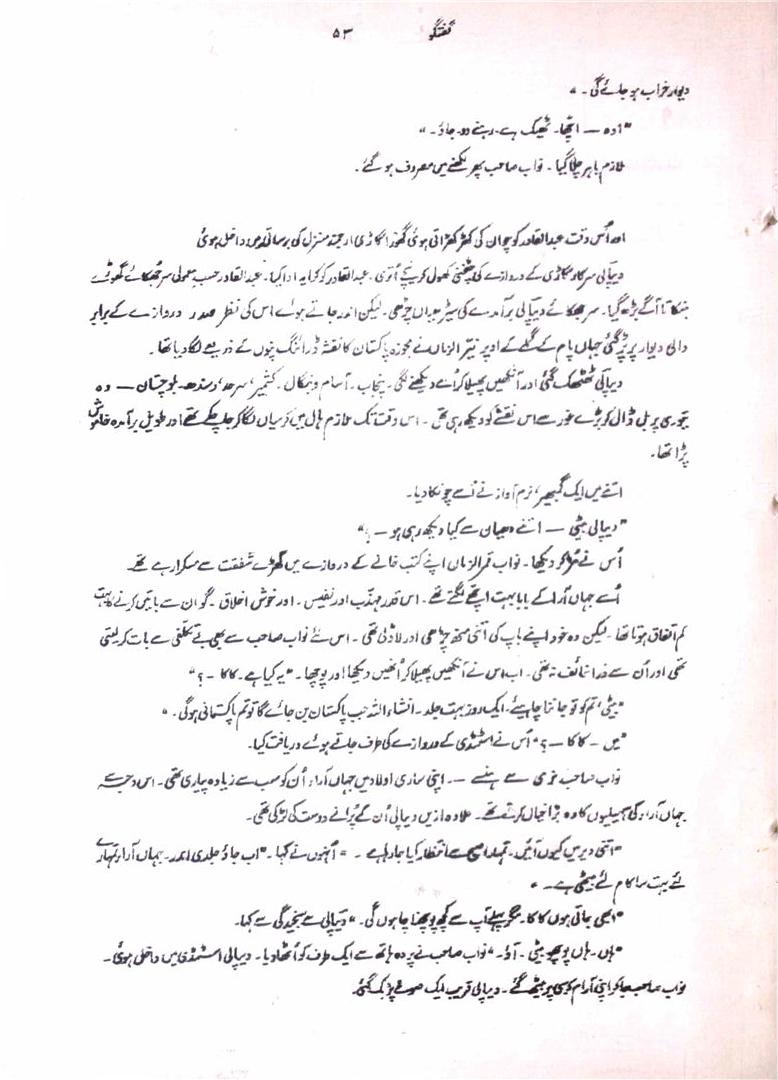 گفتگو ۵۳
دیوار خراب ہو جائے گی۔"
"اوہ — اچھا۔ ٹھیک ہے۔ رہنے دو۔ جاؤ۔"
ملازم باہر چلا گیا۔ نواب صاحب پھر لکھنے میں مصروف ہو گئے۔
اور اُس وقت عبدالقادر کوچوان کی کھڑکھڑاتی ہوئی گھوڑا گاڑی ارجمند منزل کی برساتی میں داخل ہوئی
دیپالی سرکار گاڑی کے دروازے کی چٹخنی کھول کر نیچے اُتری۔ عبدالقادر کو کرایہ ادا کیا۔ عبدالقادر حسبِ معمولی سر جھکائے گھوڑے
ہنکاتا آگے بڑھ گیا۔ سر جھکائے دیپالی برآمدے کی سیڑھیاں چڑھی۔ لیکن اندر جاتے ہوئے اس کی نظر صدر دروازے کے برابر
والی دیوار پر پڑ گئی جہاں پام کے گملے کے اوپر نیّر الزماں نے مجوزہ پاکستان کا نقشہ ڈرائنگ پنوں کے ذریعے لگا دیا تھا۔
دیپالی ٹھٹھک گئی اور آنکھیں پھیلا کر اُسے دیکھنے لگی۔ پنجاب۔ آسام و بنگال۔ کشمیر، سرحد، سندھ۔ بلوچستان — وہ
تیوری پر بل ڈال کر بڑے غور سے اس نقشے کو دیکھ رہی تھی۔ اس وقت تک ملازم ہال میں کرسیاں لگا کر جا چکے تھے اور طویل برآمدہ خاموش
پڑا تھا۔
اتنے میں ایک گمبھیر، نرم آواز نے اُسے چونکا دیا۔
"دیپالی بیٹی — اتنے دھیان سے کیا دیکھ رہی ہو —؟"
اُس نے مُڑ کر دیکھا۔ نواب قمر الزماں اپنے کتب خانے کے دروازے میں کھڑے شفقت سے مسکرا رہے تھے۔
اُسے جہاں آراء کے بابا بہت اچھے لگتے تھے۔ اس قدر مہذّب اور نفیس۔ اور خوش اخلاق۔ گو ان سے باتیں کرنے کا بہت
کم اتفاق ہوتا تھا۔ لیکن وہ خود اپنے باپ کی اتنی منھ چڑھی اور لاڈلی تھی۔ اس نے نواب صاحب سے بھی بے تکلفی سے بات کر لیتی
تھی اور اُن سے ذرا خائف نہ تھی۔ اب اس نے آنکھیں پھیلا کر اُنھیں دیکھا اور پوچھا۔ "یہ کیا ہے۔ کاکا —؟"
"بیٹی، تم کو تو جاننا چاہیئے۔ ایک روز بہت جلد۔ انشاءاللہ جب پاکستان بن جائے گا تو تم پاکستانی ہو گی۔"
"میں — کاکا —؟" اُس نے اسٹڈی کے دروازے کی طرف جاتے ہوئے دریافت کیا۔
نواب صاحب نرمی سے ہنسے —۔ اپنی ساری اولاد میں جہاں آراء اُن کو سب سے زیادہ پیاری تھی۔ اس وجہ سے
جہاں آراء کی سہیلیوں کا وہ بڑا خیال کرتے تھے۔ علاوہ ازیں دیپالی اُن کے پُرانے دوست کی لڑکی تھی۔
"اتنی دیر میں کیوں آئیں۔ تمہارا صبح سے انتظار کیا جا رہا ہے۔" اُنہوں نے کہا۔ "اب جاؤ جلدی اندر۔ جہاں آراء تمہارے
لئے بہت سا کام لئے بیٹھی ہے۔"
"ابھی جاتی ہوں کاکا۔ مگر پہلے آپ سے کچھ پوچھنا چاہوں گی۔" دیپالی سے سنجیدگی سے کہا۔
"ہاں۔ ہاں پوچھو بیٹی۔ آؤ۔" نواب صاحب نے پردہ ہاتھ سے ایک طرف کو اُٹھا دیا۔ دیپالی اسٹڈی میں داخل ہوئی۔
نواب صاحب جا کر اپنی آرام کرسی پر بیٹھ گئے۔ دیپالی قریب ایک صوفے پر ٹک گئی۔